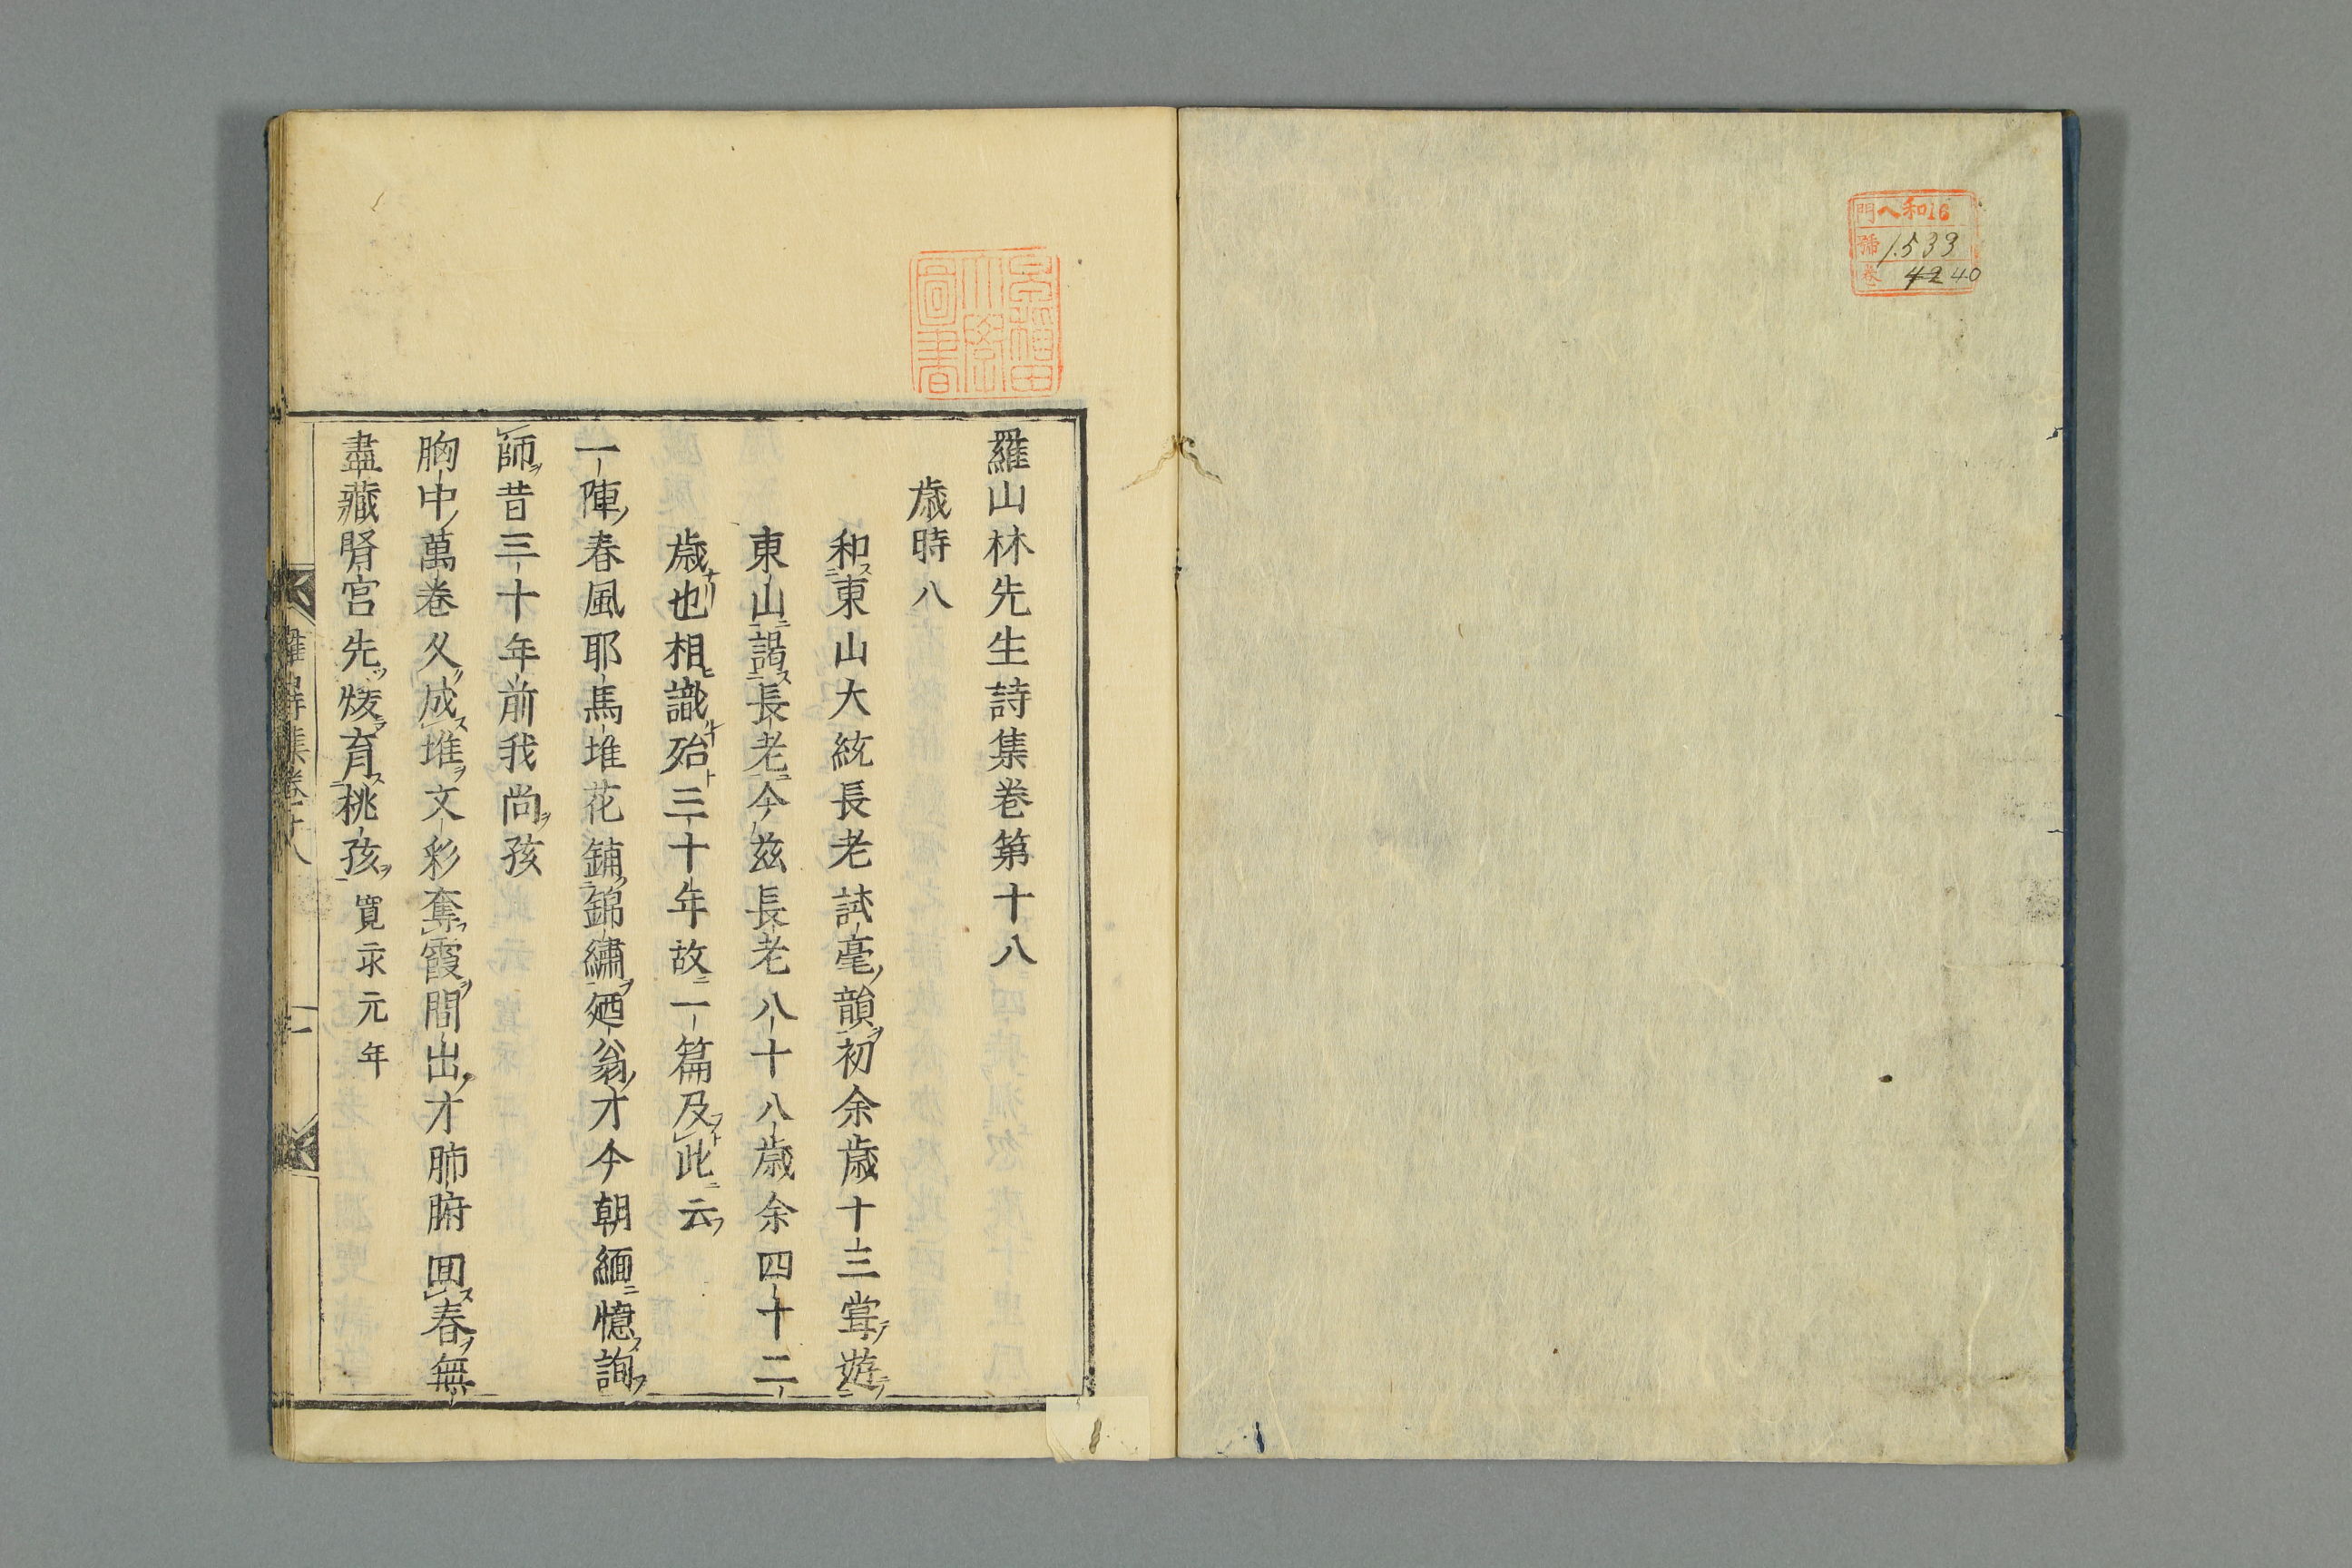 門 ヘ和16
號 1.533
卷 42 40
早稲田大學圖書
羅山林先生詩集巻第十八
歳時八
和東山大統長老試毫韻初余歳十三甞遊
東山謁長老今茲長老八十八歳余四十二
歳也相識殆三十年故一篇及此云
一陣春風耶馬堆花鋪錦繡廼翁才今朝緬憶詢
師昔三十年前我尚孩
胸中萬巻久成堆文彩奪霞間出才肺腑回春無
盡藏腎宮先煖育桃孩 寛永元年
羅山詩集巻十八
一
1